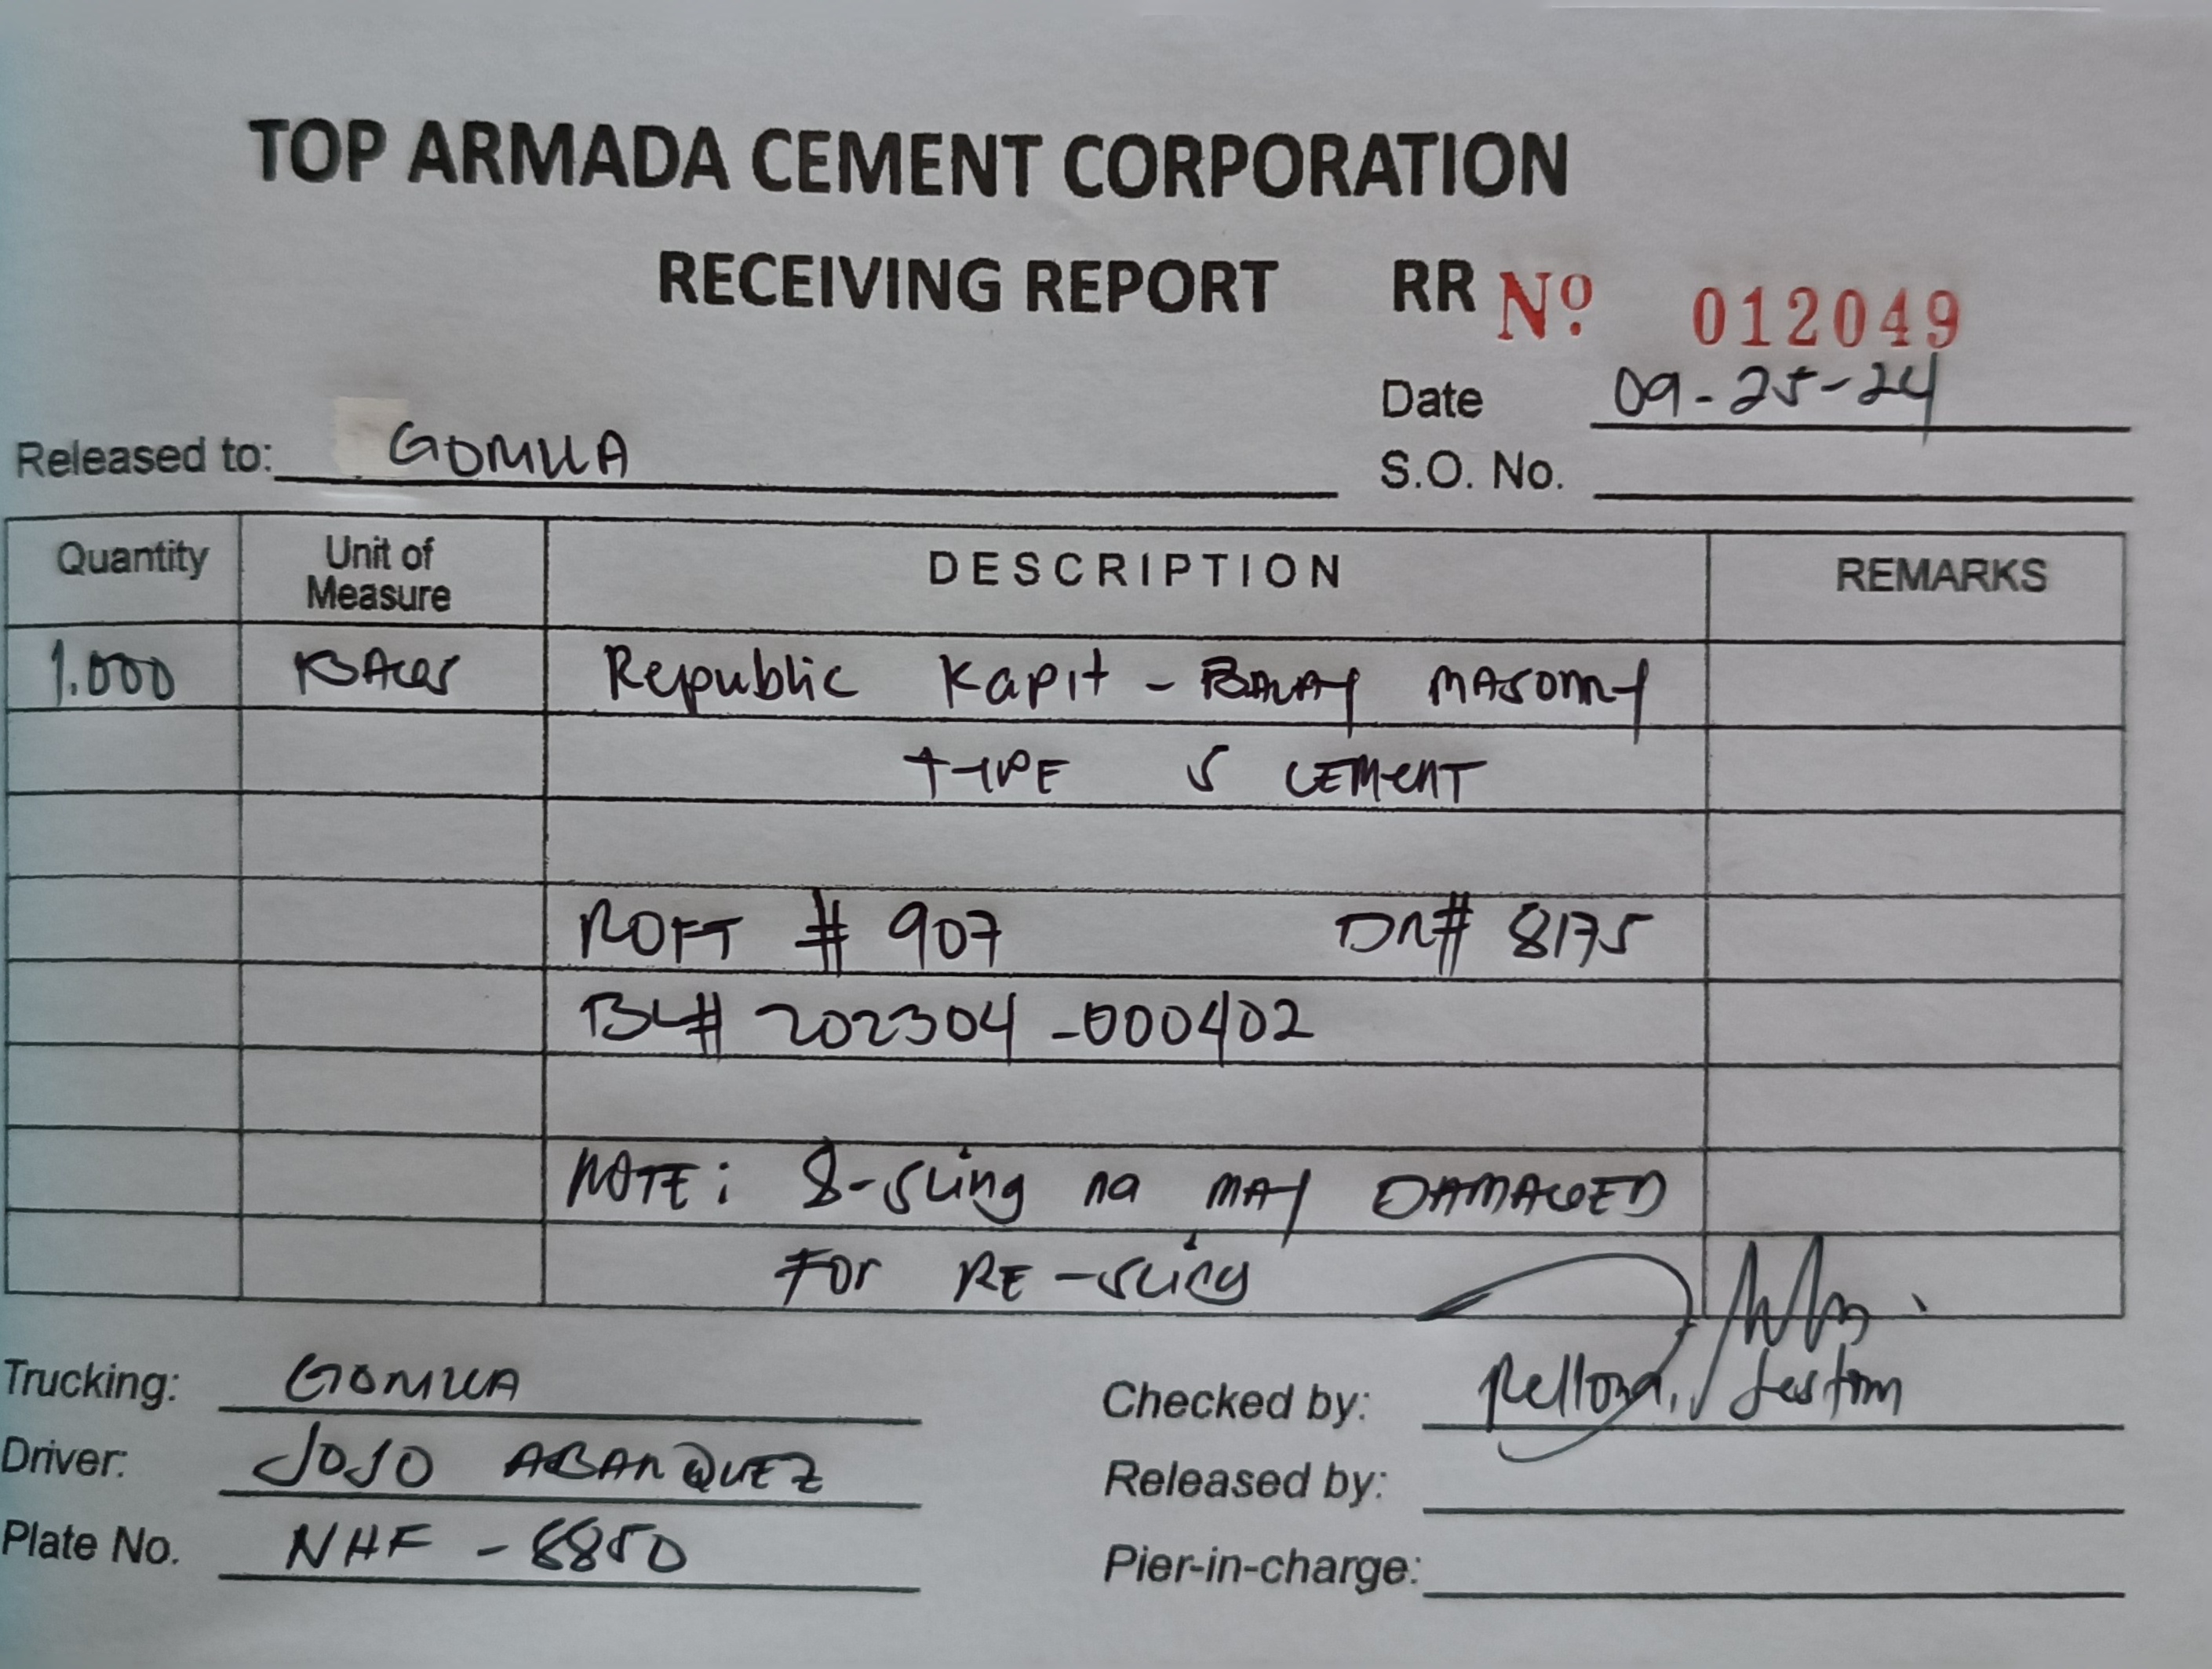 TOP ARMADA CEMENT CORPORATION
RECEIVING REPORT RR Nº 012049
Date 09-25-24
Released to: GOMUA
S.O. No.
Quantity Unit of Measure DESCRIPTION REMARKS
1.000 BAGS Republic Kapit-BALAY MASONRY
TYPE S CEMENT
ROFT # 907 DR# 8175
BL# 202304-000402
NOTE: 8-sling na MAY DAMAGED
FOR RE-sling
Trucking: GOMUA
Checked by:
Driver: JOJO ABANQUEZ
Released by:
Plate No. NHF-8850
Pier-in-charge: